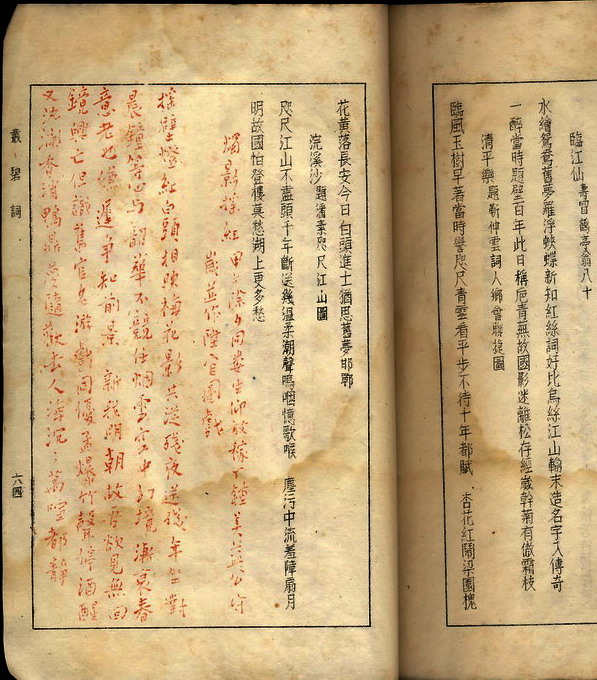 臨江仙 壽冒鶴亭翁八十
水繪鴛鴦舊夢羅浮蛺蝶新知紅絲詞好比烏絲江山翰末造名字入傳奇
一醉當時題壁百年此日稱卮青無故國影迷離松存經歲幹菊有傲霜枝
清平樂 題靳仲雲詞人鄉會聯捷圖
臨風玉樹早著當時譽咫尺青雲看平步不待十年都賦 杏花紅鬧梁園槐
花黃落長安今日白頭進士猶思舊夢邯鄲
浣溪沙 題潘素咫尺江山圖
咫尺江山不盡頭千年斷送幾溫柔潮聲嗚咽憶歌喉 塵污中流羞障扇月
明故國怕登樓莫愁湖上更多愁
燭影搖紅 甲午除夕同婁生仰放稼丁鍾美益公守
歲並作陞官圖戲
搖壁燈紅白頭相映梅花影共從殘夜送殘年坐對
晨鐘等心與韶華不競任烟雲空中幻境漸衰春
意老也偏遲爭知前景 新換明朝故吾欲覓無回
鏡興亡但識舊官游戲同優孟爆竹聲停酒醒
又沈香消鴨鼎隨歡去人海沉沉萬喧都靜
叢碧詞
六四